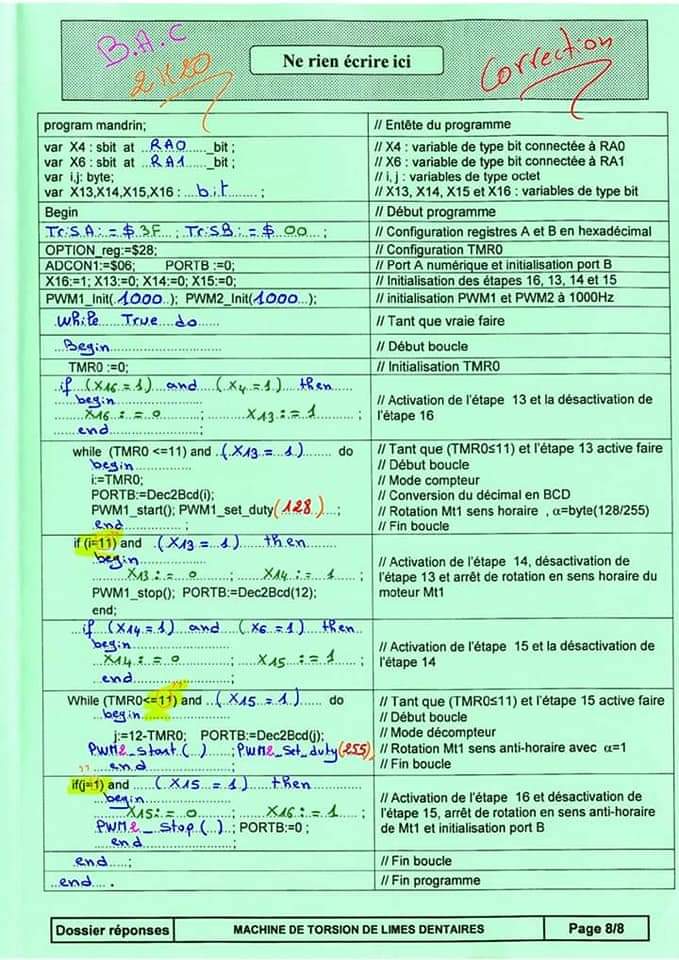 B.A.C
2K20
Ne rien écrire ici
Correction
program mandrin; // Entête du programme
var X4 : sbit at ..RA0......_bit ; // X4 : variable de type bit connectée à RA0
var X6 : sbit at ..RA1......_bit ; // X6 : variable de type bit connectée à RA1
var i,j: byte; // i, j : variables de type octet
var X13,X14,X15,X16 : ...bit.......... ; // X13, X14, X15 et X16 : variables de type bit
Begin // Début programme
TrisA: = $ 3F... ; TrisB: = $ .00.... ; // Configuration registres A et B en hexadécimal
OPTION_reg:=$28; // Configuration TMR0
ADCON1:=$06; PORTB :=0; // Port A numérique et initialisation port B
X16:=1; X13:=0; X14:=0; X15:=0; // Initialisation des étapes 16, 13, 14 et 15
PWM1_Init(.1000..); PWM2_Init(1000...); // initialisation PWM1 et PWM2 à 1000Hz
.While...True...do...... // Tant que vraie faire
...Begin............... // Début boucle
TMR0 :=0; // Initialisation TMR0
.if..(X16 = 1)..and....(X4 = 1)...then......
....begin.................... // Activation de l'étape 13 et la désactivation de
........X16 : = 0.........; ........X13 : = 1........ ; l'étape 16
......end.......................;
while (TMR0 <=11) and ..(X13 = 1)........ do // Tant que (TMR0≤11) et l'étape 13 active faire
begin............... // Début boucle
i:=TMR0; // Mode compteur
PORTB:=Dec2Bcd(i); // Conversion du décimal en BCD
PWM1_start(); PWM1_set_duty(128)...; // Rotation Mt1 sens horaire , α=byte(128/255)
.end............... ; // Fin boucle
if (i=11) and ..(X13 = 1)......then.......
...begin............... // Activation de l'étape 14, désactivation de
........X13 : = 0.........; .....X14 : = 1...... ; l'étape 13 et arrêt de rotation en sens horaire du
PWM1_stop(); PORTB:=Dec2Bcd(12); moteur Mt1
end;
...if..(X14 = 1)...and....(X6 = 1)..then.....
begin............... // Activation de l'étape 15 et la désactivation de
..X14 : = 0...........; .....X15 : = 1...... ; l'étape 14
....end.......................;
While (TMR0<=11) and ...(X15 = 1)..... do // Tant que (TMR0≤11) et l'étape 15 active faire
...begin..................... // Début boucle
j:=12-TMR0; PORTB:=Dec2Bcd(j); // Mode décompteur
PWM2_Start()......;PWM2_Set_duty(255); // Rotation Mt1 sens anti-horaire avec α=1
.....end.................; // Fin boucle
if(j=1) and ......(X15 = 1).......then..........
...begin............... // Activation de l'étape 16 et désactivation de
.....X15: = 0...........; .....X16 : = 1...... ; l'étape 15, arrêt de rotation en sens anti-horaire
PWM2_Stop(..)..; PORTB:=0 ; de Mt1 et initialisation port B
......end....................;
.end....; // Fin boucle
..end.... . // Fin programme
Dossier réponses MACHINE DE TORSION DE LIMES DENTAIRES Page 8/8